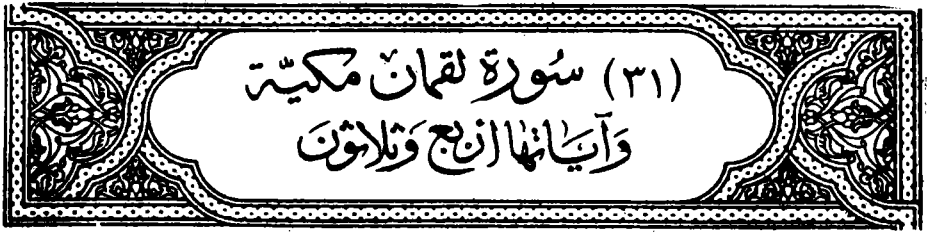 (٣١) سُورة لقمان مكيّة
وَآيَاتها اربع وَثلاثونَ